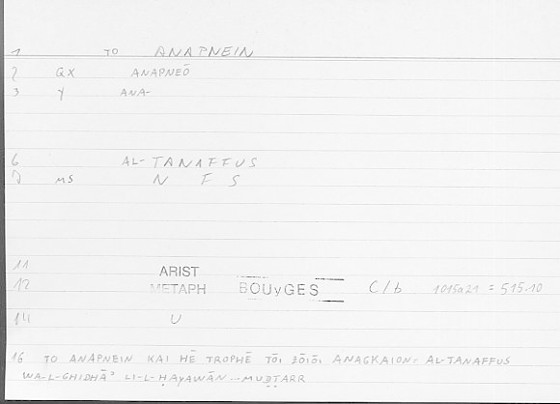 1 TO ANAPNEIN
2 GX ANAPNEŌ
3 Y ANA-
6 AL-TANAFFUS
7 MS N F S
11 ARIST
12 METAPH BOUyGES C/b 1015a21 = 515.10
14 U
16 TO ANAPNEIN KAI HĒ TROPHĒ TŌI ZŌIŌI ANAGKAION: AL-TANAFFUS
WA-L-GHIDHĀʾ LI-L-ḤAyAWĀN ... MUḌṬARR